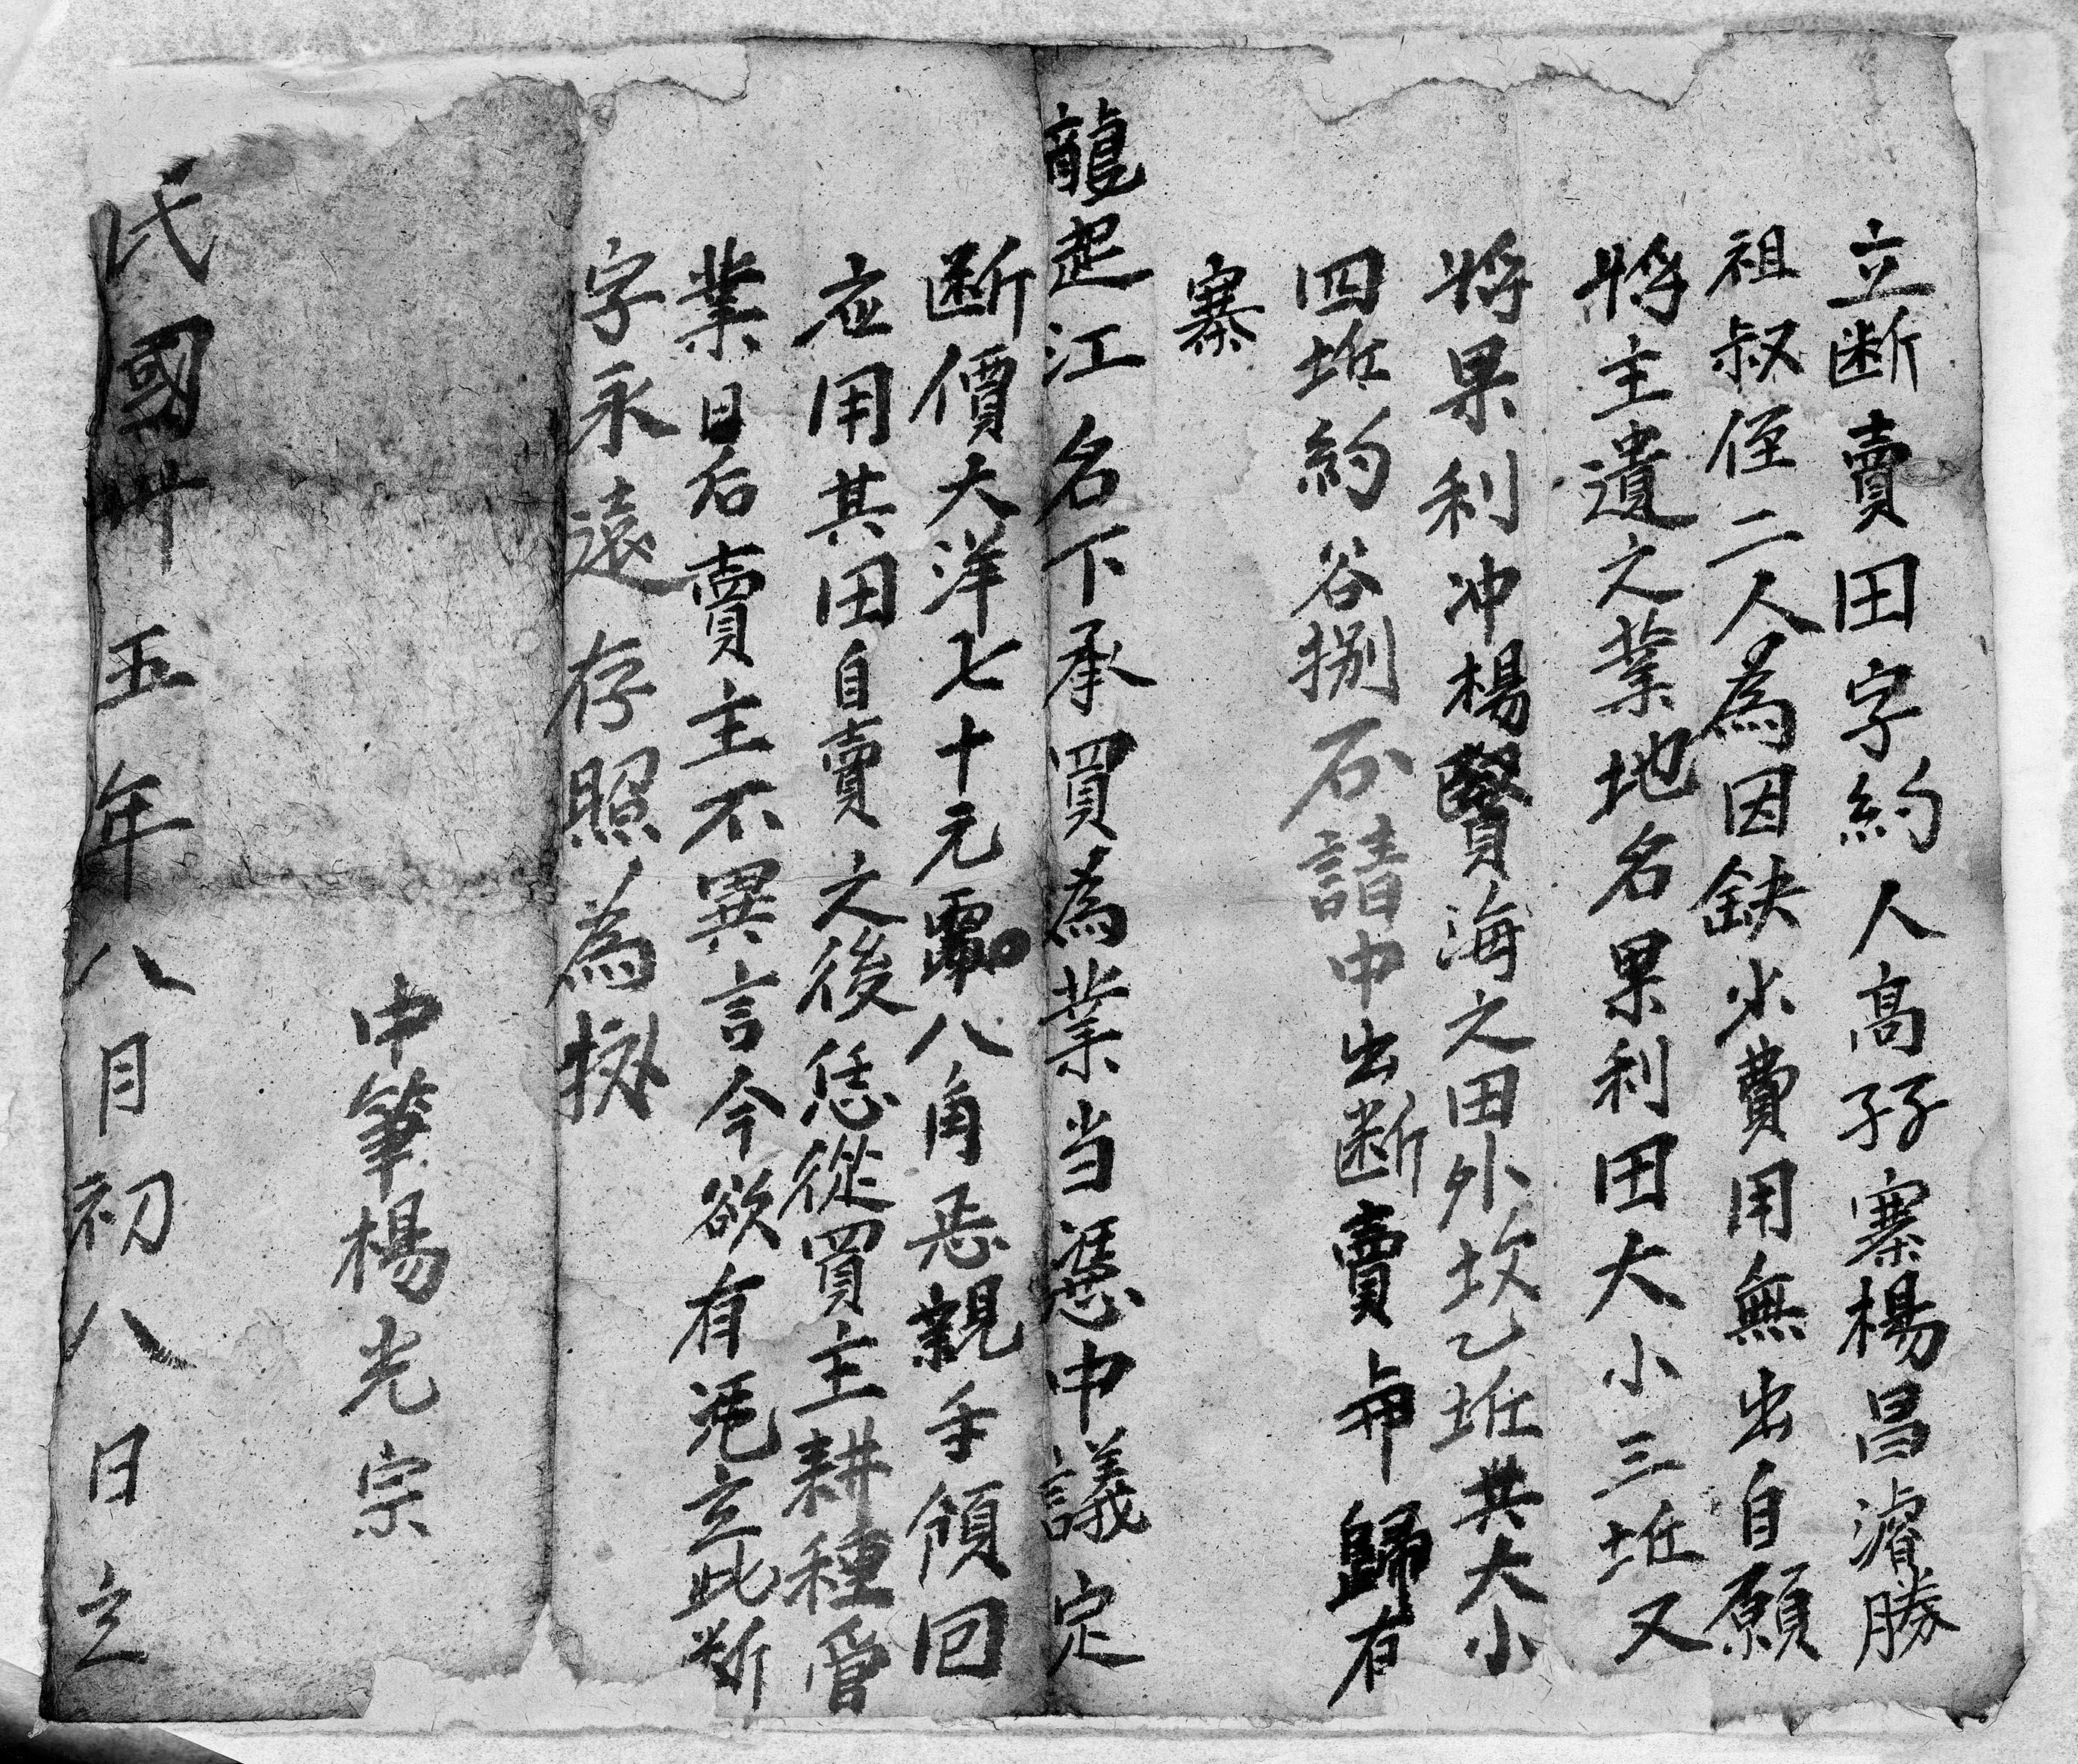 立断賣田字約人高孖寨楊昌濬勝
祖叔侄二人為因缺少費用無出自願
將主遺之業地名果利田大小三坵又
將果利冲楊賢海之田外坎乙坵共大小
四坵約谷捌石請中出断賣與歸有
寨
龍起江名下承買為業当憑中議定
断價大洋七十元零八角恁親手領回
应用其田自賣之後恁從買主耕種管
業日后賣主不異言今欲有凴立此断
字永遠存照為拠
中筆楊光宗
民國廿五年八月初八日立